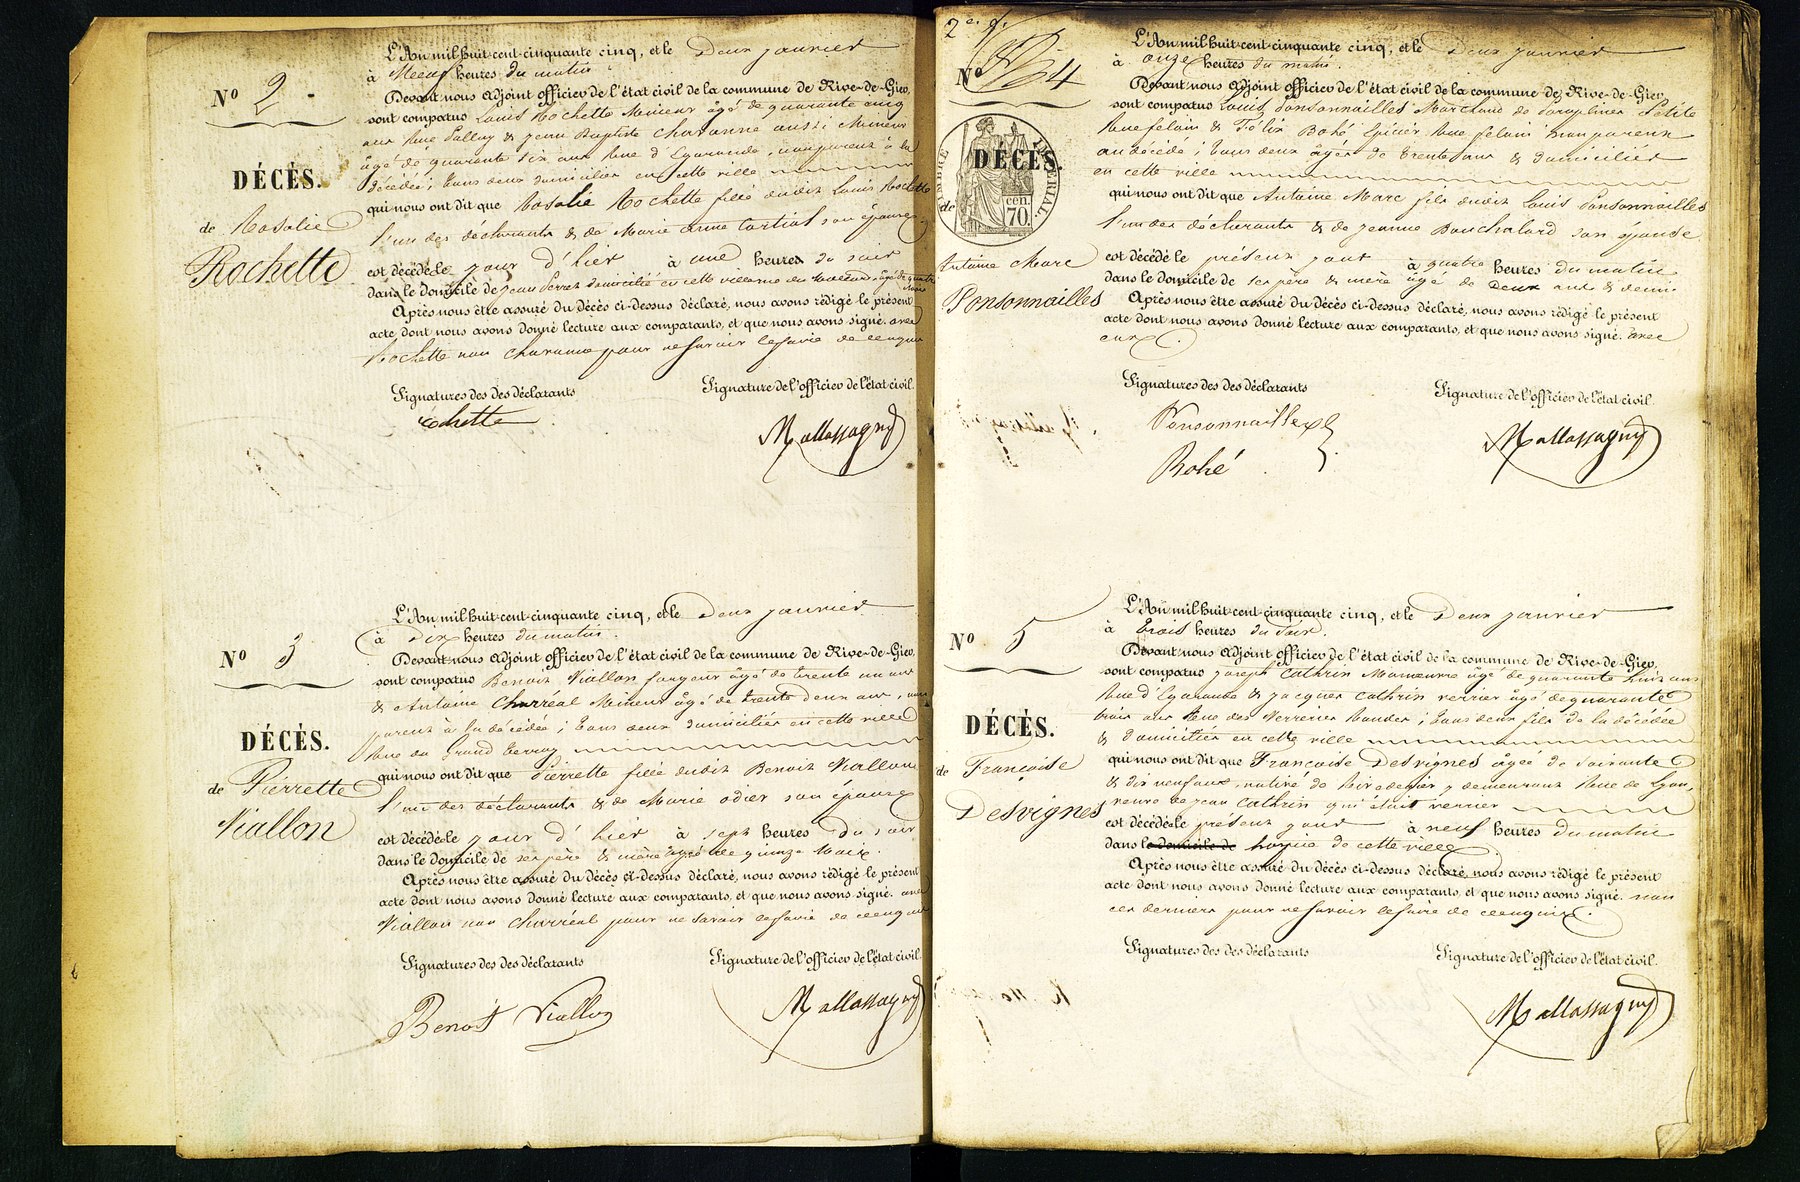 L'An mil huit cent cinquante cinq, et le Deux janvier
à Neuf heures du matin
N° 2
Devant nous Adjoint officier de l'état civil de la commune de Rive-de-Gier,
sont comparus Louis Rochette Mineur âgé de quarante cinq
ans Rue & jean Baptiste Chavanne aussi Mineur
âgé de quarante six ans Rue d'Egarande, non parent à la
DÉCÈS.
décédée; tous deux domiciliés en cette ville
qui nous ont dit que Rosalie Rochette fille dudit Louis Rochette
de Rosalie
l'un des déclarants & de Marie Anne son épouse
Rochette
est décédé le jour d'hier à une heures du soir
dans le domicile de jean domicilié en cette ville
Après nous être assuré du décès ci-dessus déclaré, nous avons rédigé le présent
acte dont nous avons donné lecture aux comparants, et que nous avons signé. avec
Rochette non Chavanne pour ne savoir le faire de ce enquis
Signatures des des déclarants Signature de l'officier de l'état civil.
ochette Mallassagny
L'An mil huit cent cinquante cinq, et le Deux janvier
à Dix heures du matin.
N° 3
Devant nous Adjoint officier de l'état civil de la commune de Rive-de-Gier,
sont comparus Benoit Viallon forgeur âgé de trente un ans
& Antoine Charréal Mineur âgé de trente deux ans, non
parent à la décédée; tous deux domiciliés en cette ville
DÉCÈS.
Rue du Grand
qui nous ont dit que Pierrette fille dudit Benoit Viallon
de Pierrette
l'un des déclarants & de Marie odier son épouse
Viallon
est décédé le jour d'hier à sept heures du soir
dans le domicile de ses père & mère âgée de quinze Mois.
Après nous être assuré du décès ci-dessus déclaré, nous avons rédigé le présent
acte dont nous avons donné lecture aux comparants, et que nous avons signé. avec
Viallon non Charréal pour ne savoir le faire de ce enquis
Signatures des des déclarants Signature de l'officier de l'état civil.
Benoit Viallon Mallassagny
L'An mil huit cent cinquante cinq, et le Deux janvier
à onze heures du matin.
N° 4
Devant nous Adjoint officier de l'état civil de la commune de Rive-de-Gier,
sont comparus Louis Ponsonnailles Marchand de Parapluies Petite
Rue feloin & Félix Bohé Epicier Rue feloin non parent
au décédé; tous deux âgés de trente ans & domiciliés
TIMBRE IMPÉRIAL.
DÉCÈS.
70 cen.
en cette ville
qui nous ont dit que Antoine Marc fils dudit Louis Ponsonnailles
de
l'un des déclarants & de jeanne Bouchalard son épouse
Antoine Marc
est décédé le présent jour à quatre heures du matin
dans le domicile de ses père & mère âgé de Deux ans & demi.
Ponsonnailles
Après nous être assuré du décès ci-dessus déclaré, nous avons rédigé le présent
acte dont nous avons donné lecture aux comparants, et que nous avons signé. avec
eux.
Signatures des des déclarants Signature de l'officier de l'état civil.
Ponsonnailles Mallassagny
Bohé
L'An mil huit cent cinquante cinq, et le Deux janvier
à trois heures du soir.
N° 5
Devant nous Adjoint officier de l'état civil de la commune de Rive-de-Gier,
sont comparus joseph Cathrin Manoeuvre âgé de quarante huit ans
Rue d'Egarande & jacques Cathrin verrier âgé de quarante
trois ans Rue des Verreries ; tous deux fils de la décédée
DÉCÈS.
& domiciliés en cette ville
qui nous ont dit que Françoise Desvignes âgée de soixante
de Françoise
& dix neuf ans, native de Rivedegier y demeurant Rue de Lyon,
veuve de jean Cathrin qui était verrier
Desvignes
est décédé le présent jour à neuf heures du matin
dans le domicile de hospice de cette ville.
Après nous être assuré du décès ci-dessus déclaré, nous avons rédigé le présent
acte dont nous avons donné lecture aux comparants, et que nous avons signé. non
ces derniers pour ne savoir le faire de ce enquis.
Signatures des des déclarants Signature de l'officier de l'état civil.
Mallassagny